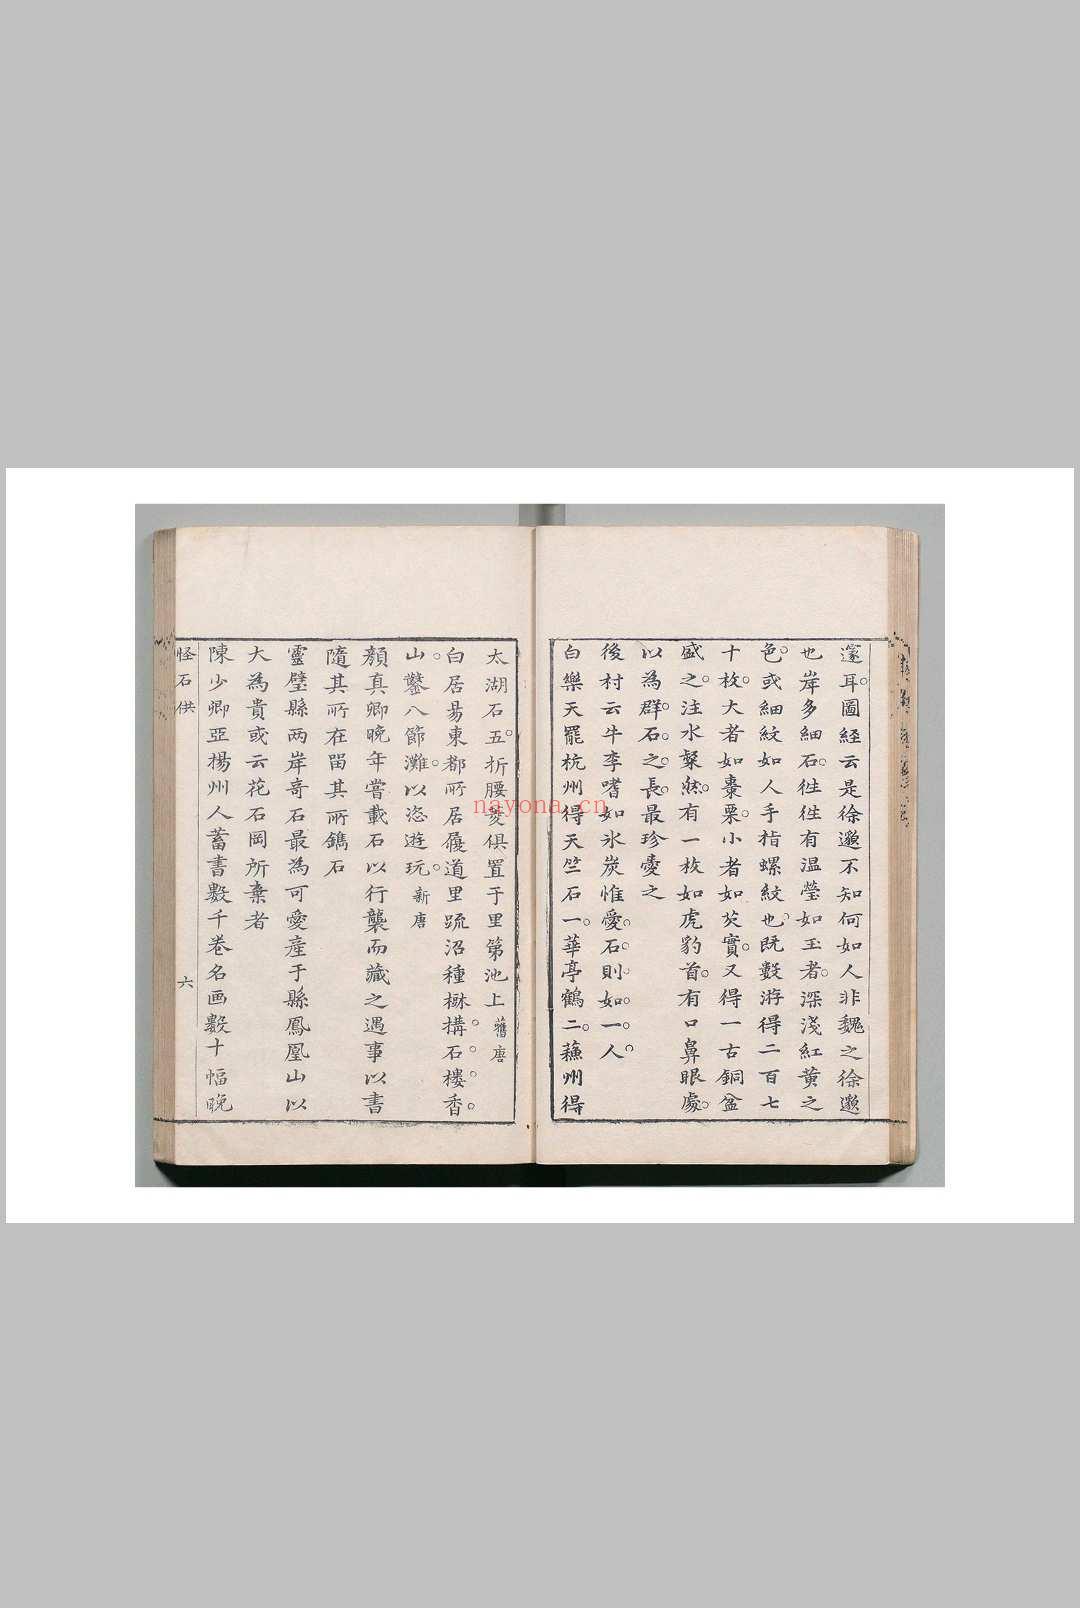 邃耳圖経云是徐邈不知何如人非魏之徐邈
也岸多細石徃徃有温瑩如玉者深淺紅黄之
色或細紋如人手指螺紋也既數游得二百七
十枚大者如棗栗小者如芡實又得一古銅盆
盛之注水粲然有一枚如虎豹首有口鼻眼處
以為群石之長最珍愛之
後村云牛李嗜如氷炭惟愛石則如一人
白樂天罷杭州得天竺石一華亭鶴二蘓州得
太湖石五折腰菱俱置于里第池上舊唐
白居易東都所居履道里疏沼種樹構石樓香
山鑿八節灘以恣遊玩新唐
顔真卿晩年嘗載石以行襲而藏之遇事以書
隨其所在留其所鐫石
靈璧縣两岸竒石最為可愛產于縣鳳凰山以
大為貴或云花石岡所棄者
陳少卿亞揚州人蓄書數千卷名画數十幅晩
怪石供
六
nayona.cn